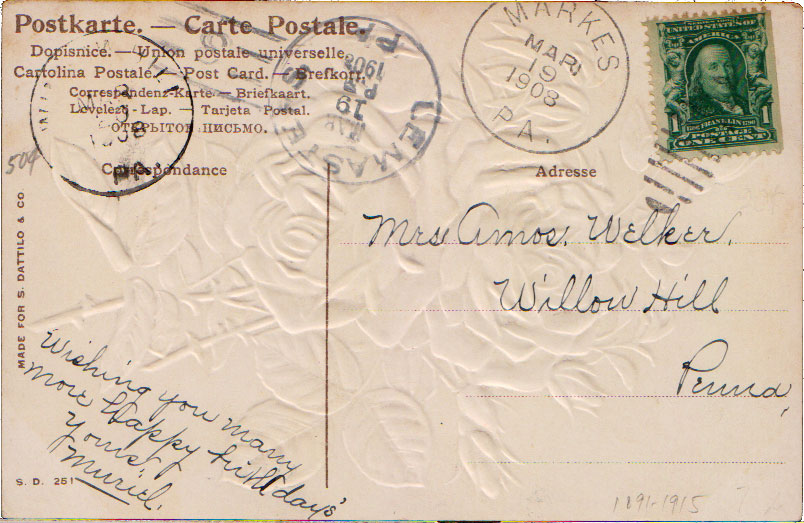 Postkarte. — Carte Postale.
Dopisnice. — Union postale universelle.
Cartolina Postale. — Post Card. — Brefkort.
Correspondenz-Karte. — Briefkaart.
Levelezö-Lap. — Tarjeta Postal.
ОТКРЫТОЕ ПИСЬМО.
Correspondance
Adresse
LEMASTERS
PA.
MAR
19
1908
MARKES
MAR
19
1908
PA.
UNITED STATES OF
1
FRANKLIN
1
POSTAGE
ONE CENT
509
MADE FOR S. DATTILO & CO
Mrs. Amos. Welker.
Willow Hill
Penna,
Wishing you many
more Happy birthdays
Yours,
Muriel.
S. D. 251
1891-1915